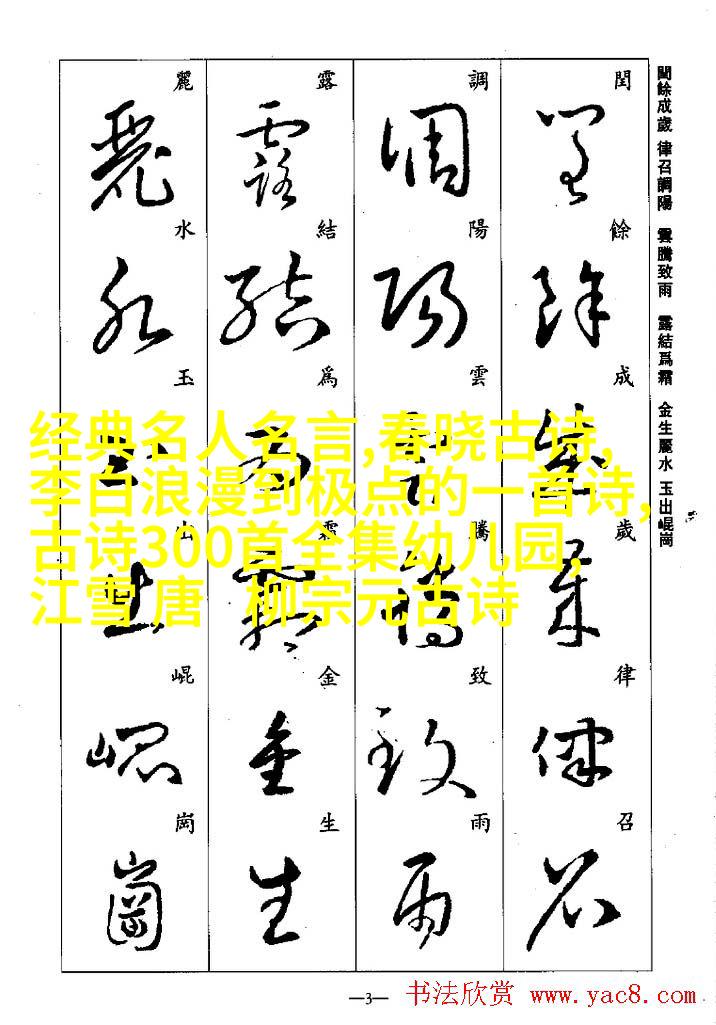 閏餘成歲 律召調陽 雲騰致雨 露結爲霜 金生麗水 玉出崐崗
閏餘成歲律召
調陽雲騰致雨
露結爲霜金生
麗水玉出崐崗
经典名人名言,春晓古诗,
李白浪漫到极点的一首诗,
古诗300首全集幼儿园,
江雪 唐 柳宗元古诗
—3—
书法欣赏 www.yac8.com